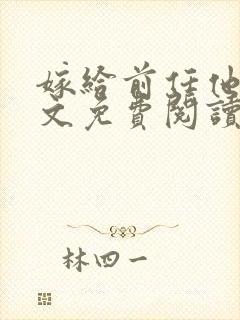 嫁给前任他
文免費閱讀
林四一